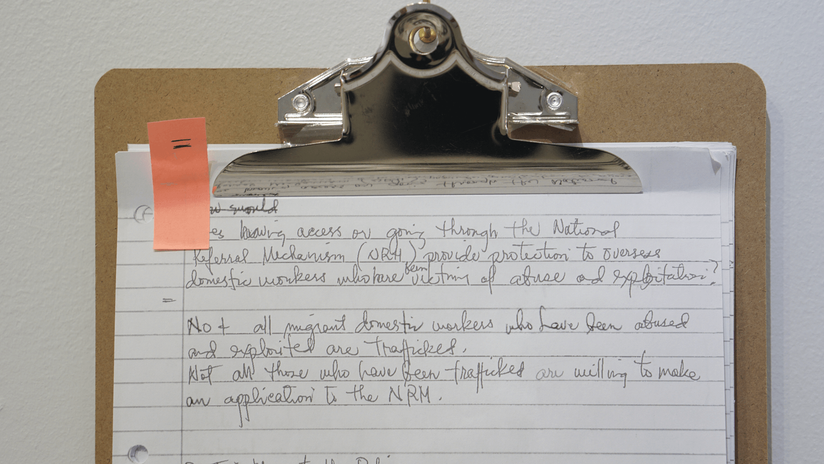 =
would
having access or going through the National
Referral Mechanism (NRM) provide protection to overseas
domestic workers who are been victims of abuse and exploitation?
=
Not all migrant domestic workers who have been abused
and exploited are trafficked.
Not all those who have been trafficked are willing to make
an application to the NRM.